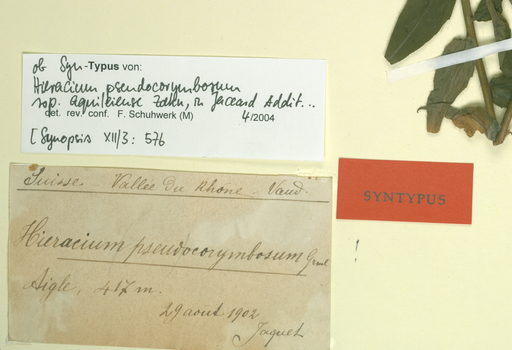 ob Syn-Typus von:
Hieracium pseudocorymbosum
ssp. aquileiense Zahn, in Jaccard Addit...
det. rev. conf. F. Schuhwerk (M) 4/2004
[Synopsis XII/3: 576
Suisse. Vallée du Rhône - Vaud.
Hieracium pseudocorymbosum Greml
SYNTYPUS
Aigle, 417 m.
29 aout 1902
Jaquet